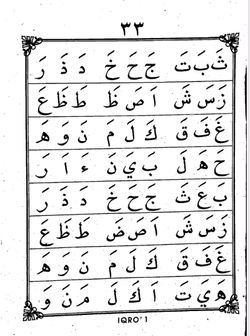 ٣٣
ثَ بَ تَ جَ حَ خَ دَ ذَ رَ
زَ سَ شَ اَ صَ ضَ طَ ظَ عَ
غَ فَ قَ كَ لَ مَ نَ وَ هَ
حَ هَ لَ بَ يَ نَ ءَ اَ رَ
بَ عَ ثَ جَ حَ خَ دَ ذَ رَ
زَ سَ شَ اَ صَ ضَ طَ ظَ عَ
غَ فَ قَ كَ لَ مَ نَ وَ هَ
هَ يَ تَ اَ كَ لَ مَ نَ وَ
IQRO' 1